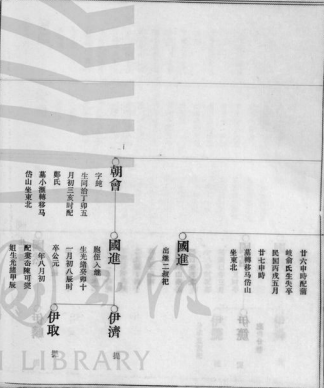 廿六申時配前
岐俞氏生失卒
民國丙戌五月
廿七申時
墓轉移马岱山
坐東北
國進
出繼二叔祀
朝會
字純
生同治丁卯五
月初三亥时配
鄭氏
墓小澳轉移马
岱山坐東北
國進
胞侄入繼
生光緒癸卯十
一月初八辰时
卒公元
年八月初
配寒岙陳可炎
姐生光緒甲辰
伊濟
伊取
LIBRARY